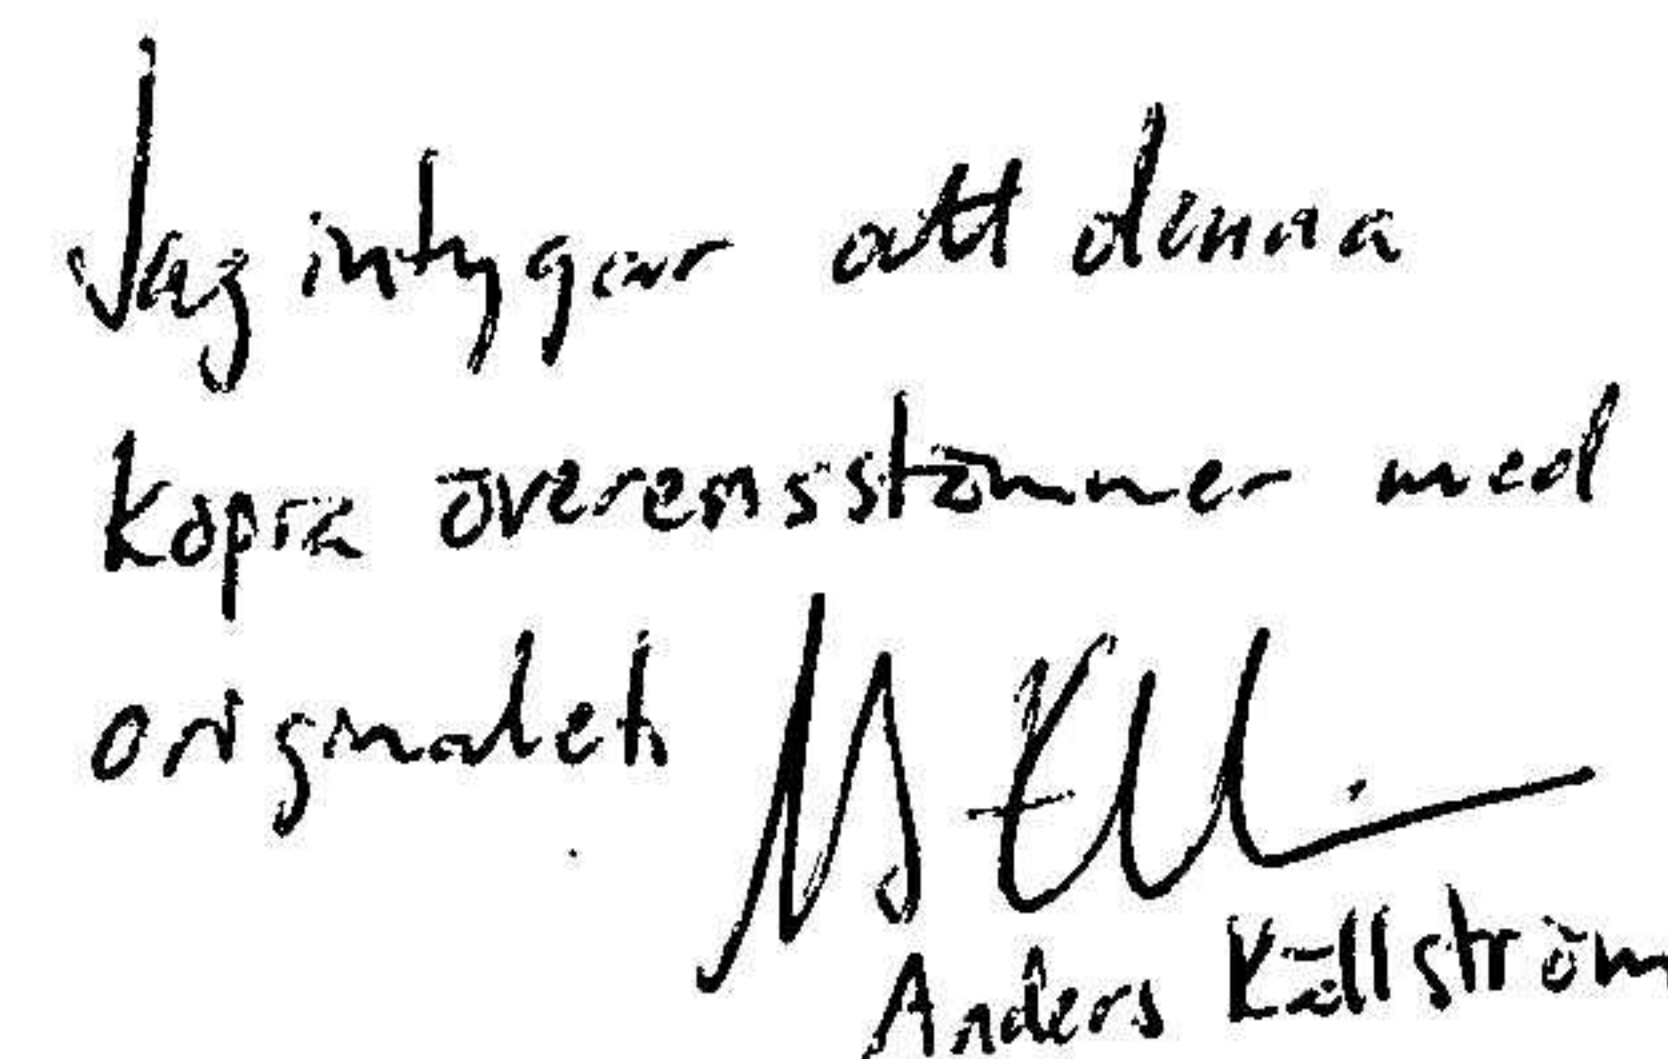 Jag intygar att denna
kopia överensstämmer med
originalet
Anders Källström